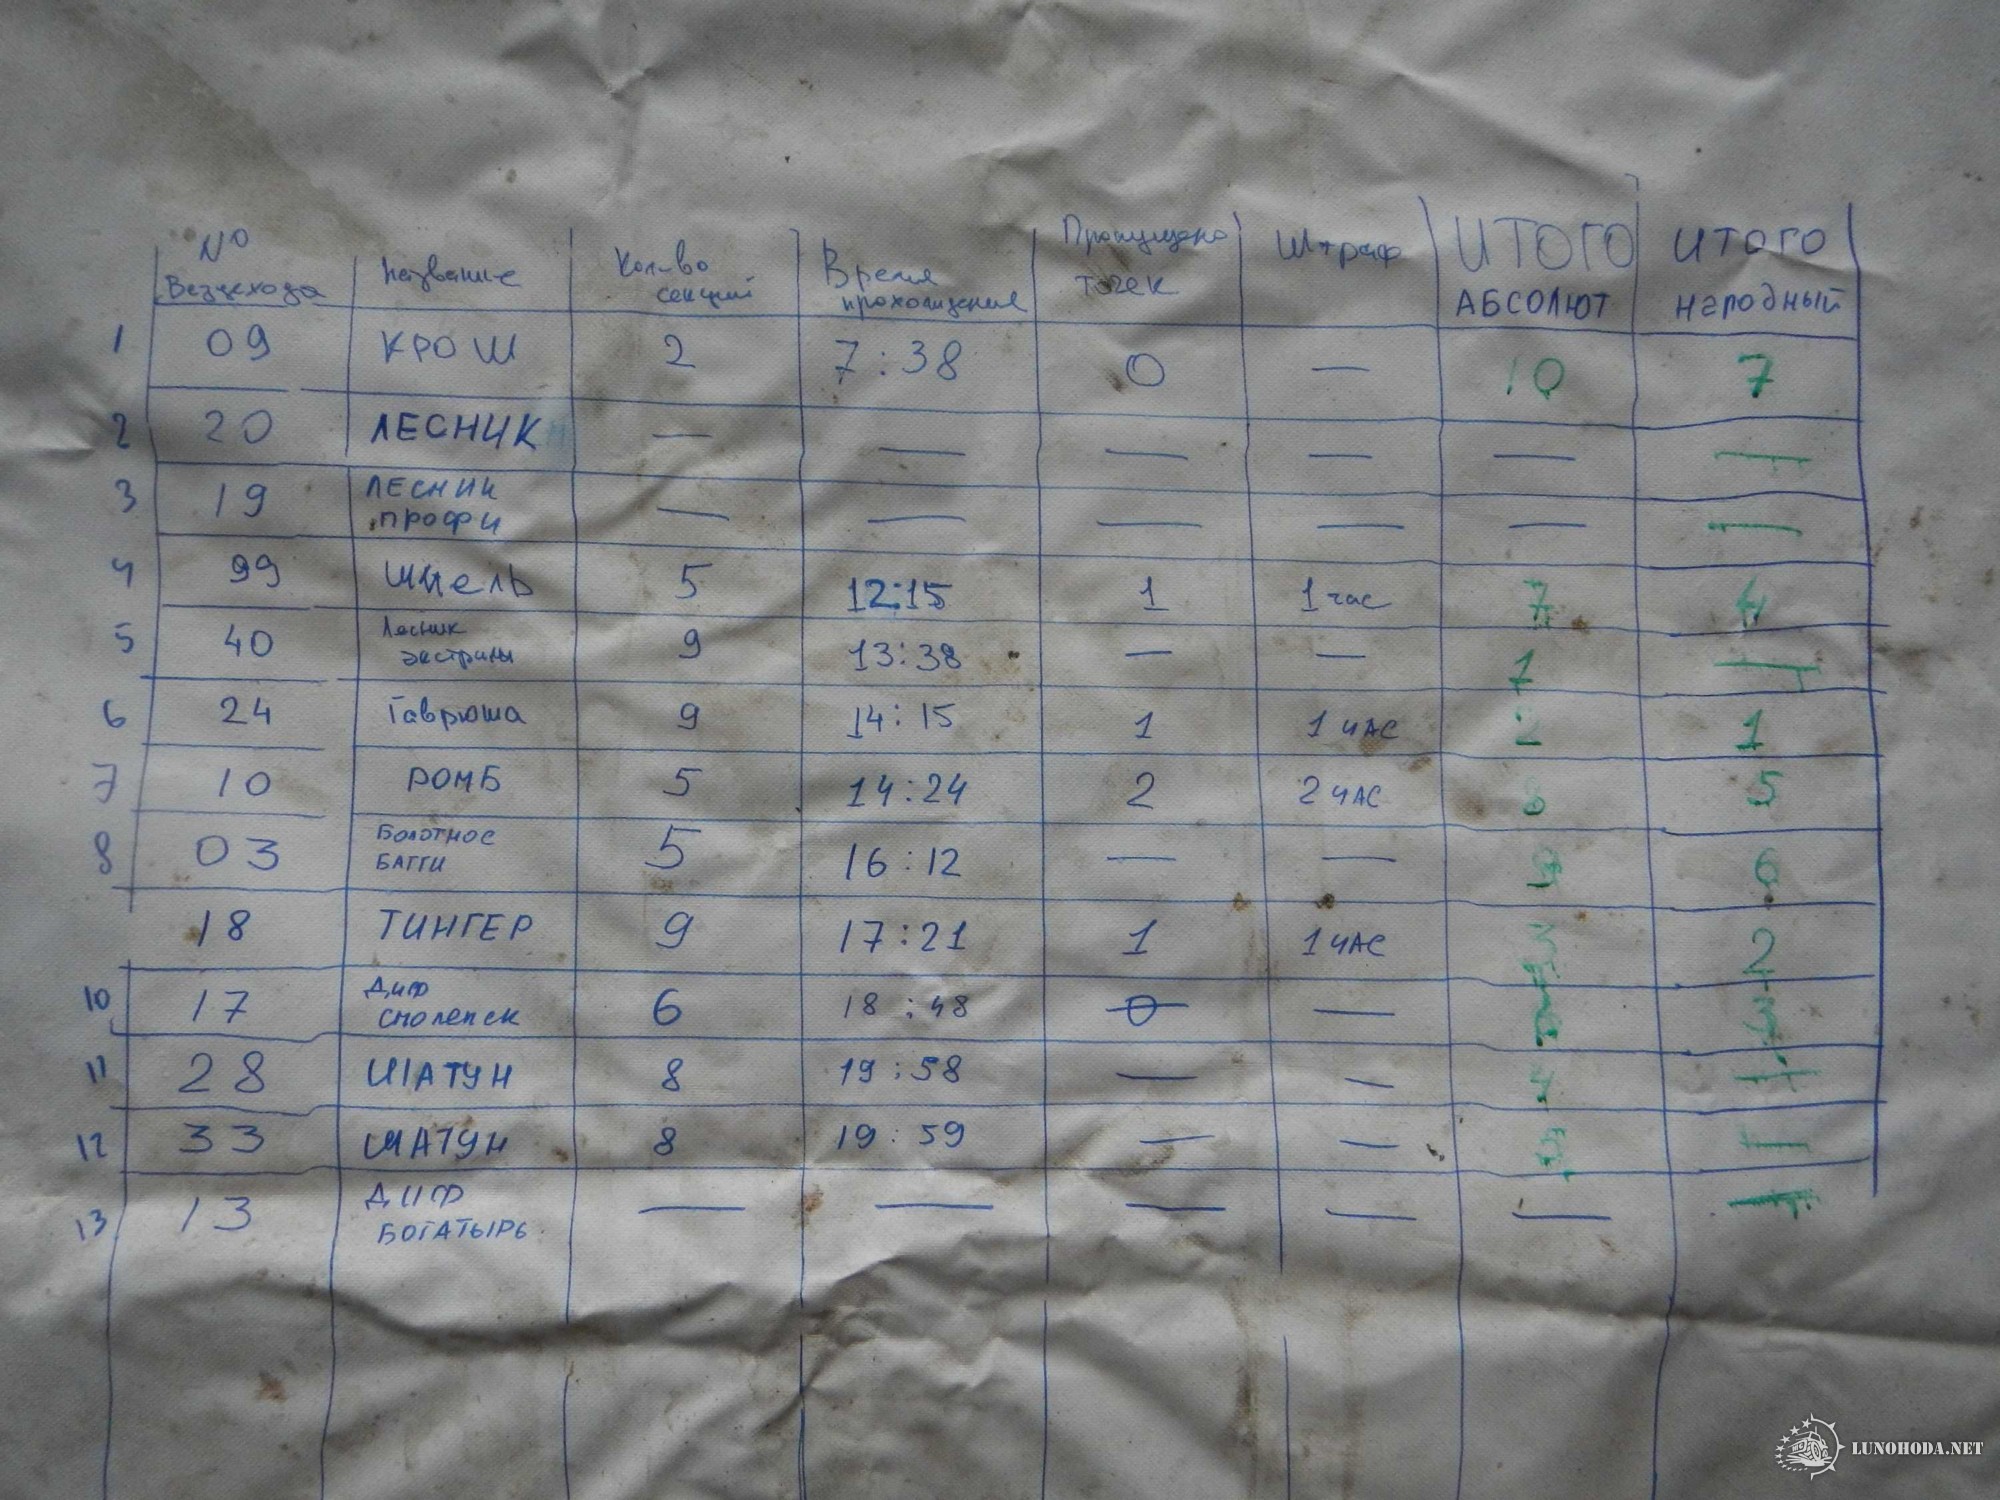 № Вездехода Название Кол-во секций Время прохождения Пропущено точек Штраф ИТОГО АБСОЛЮТ ИТОГО народный
1 09 КРОШ 2 7:38 0 — 10 7
2 20 ЛЕСНИК — — — — — —
3 19 ЛЕСНИК ПРОФИ — — — — — —
4 99 Шмель 5 12:15 1 1 час 7 4
5 40 Лесник экстрим 9 13:38 — — 1 —
6 24 Гаврюша 9 14:15 1 1 ЧАС 2 1
7 10 РОМБ 5 14:24 2 2 ЧАС 5
8 03 Болотное БАГГИ 5 16:12 — — 6
18 ТИНГЕР 9 17:21 1 1 ЧАС 3 2
10 17 Диф Смоленск 6 18:48 0 —
11 28 ШАТУН 8 19:58 — — —
12 33 ШАТУН 8 19:59 — — —
13 13 ДИФ БОГАТЫРЬ — — — — — —
LUNOHODA.NET